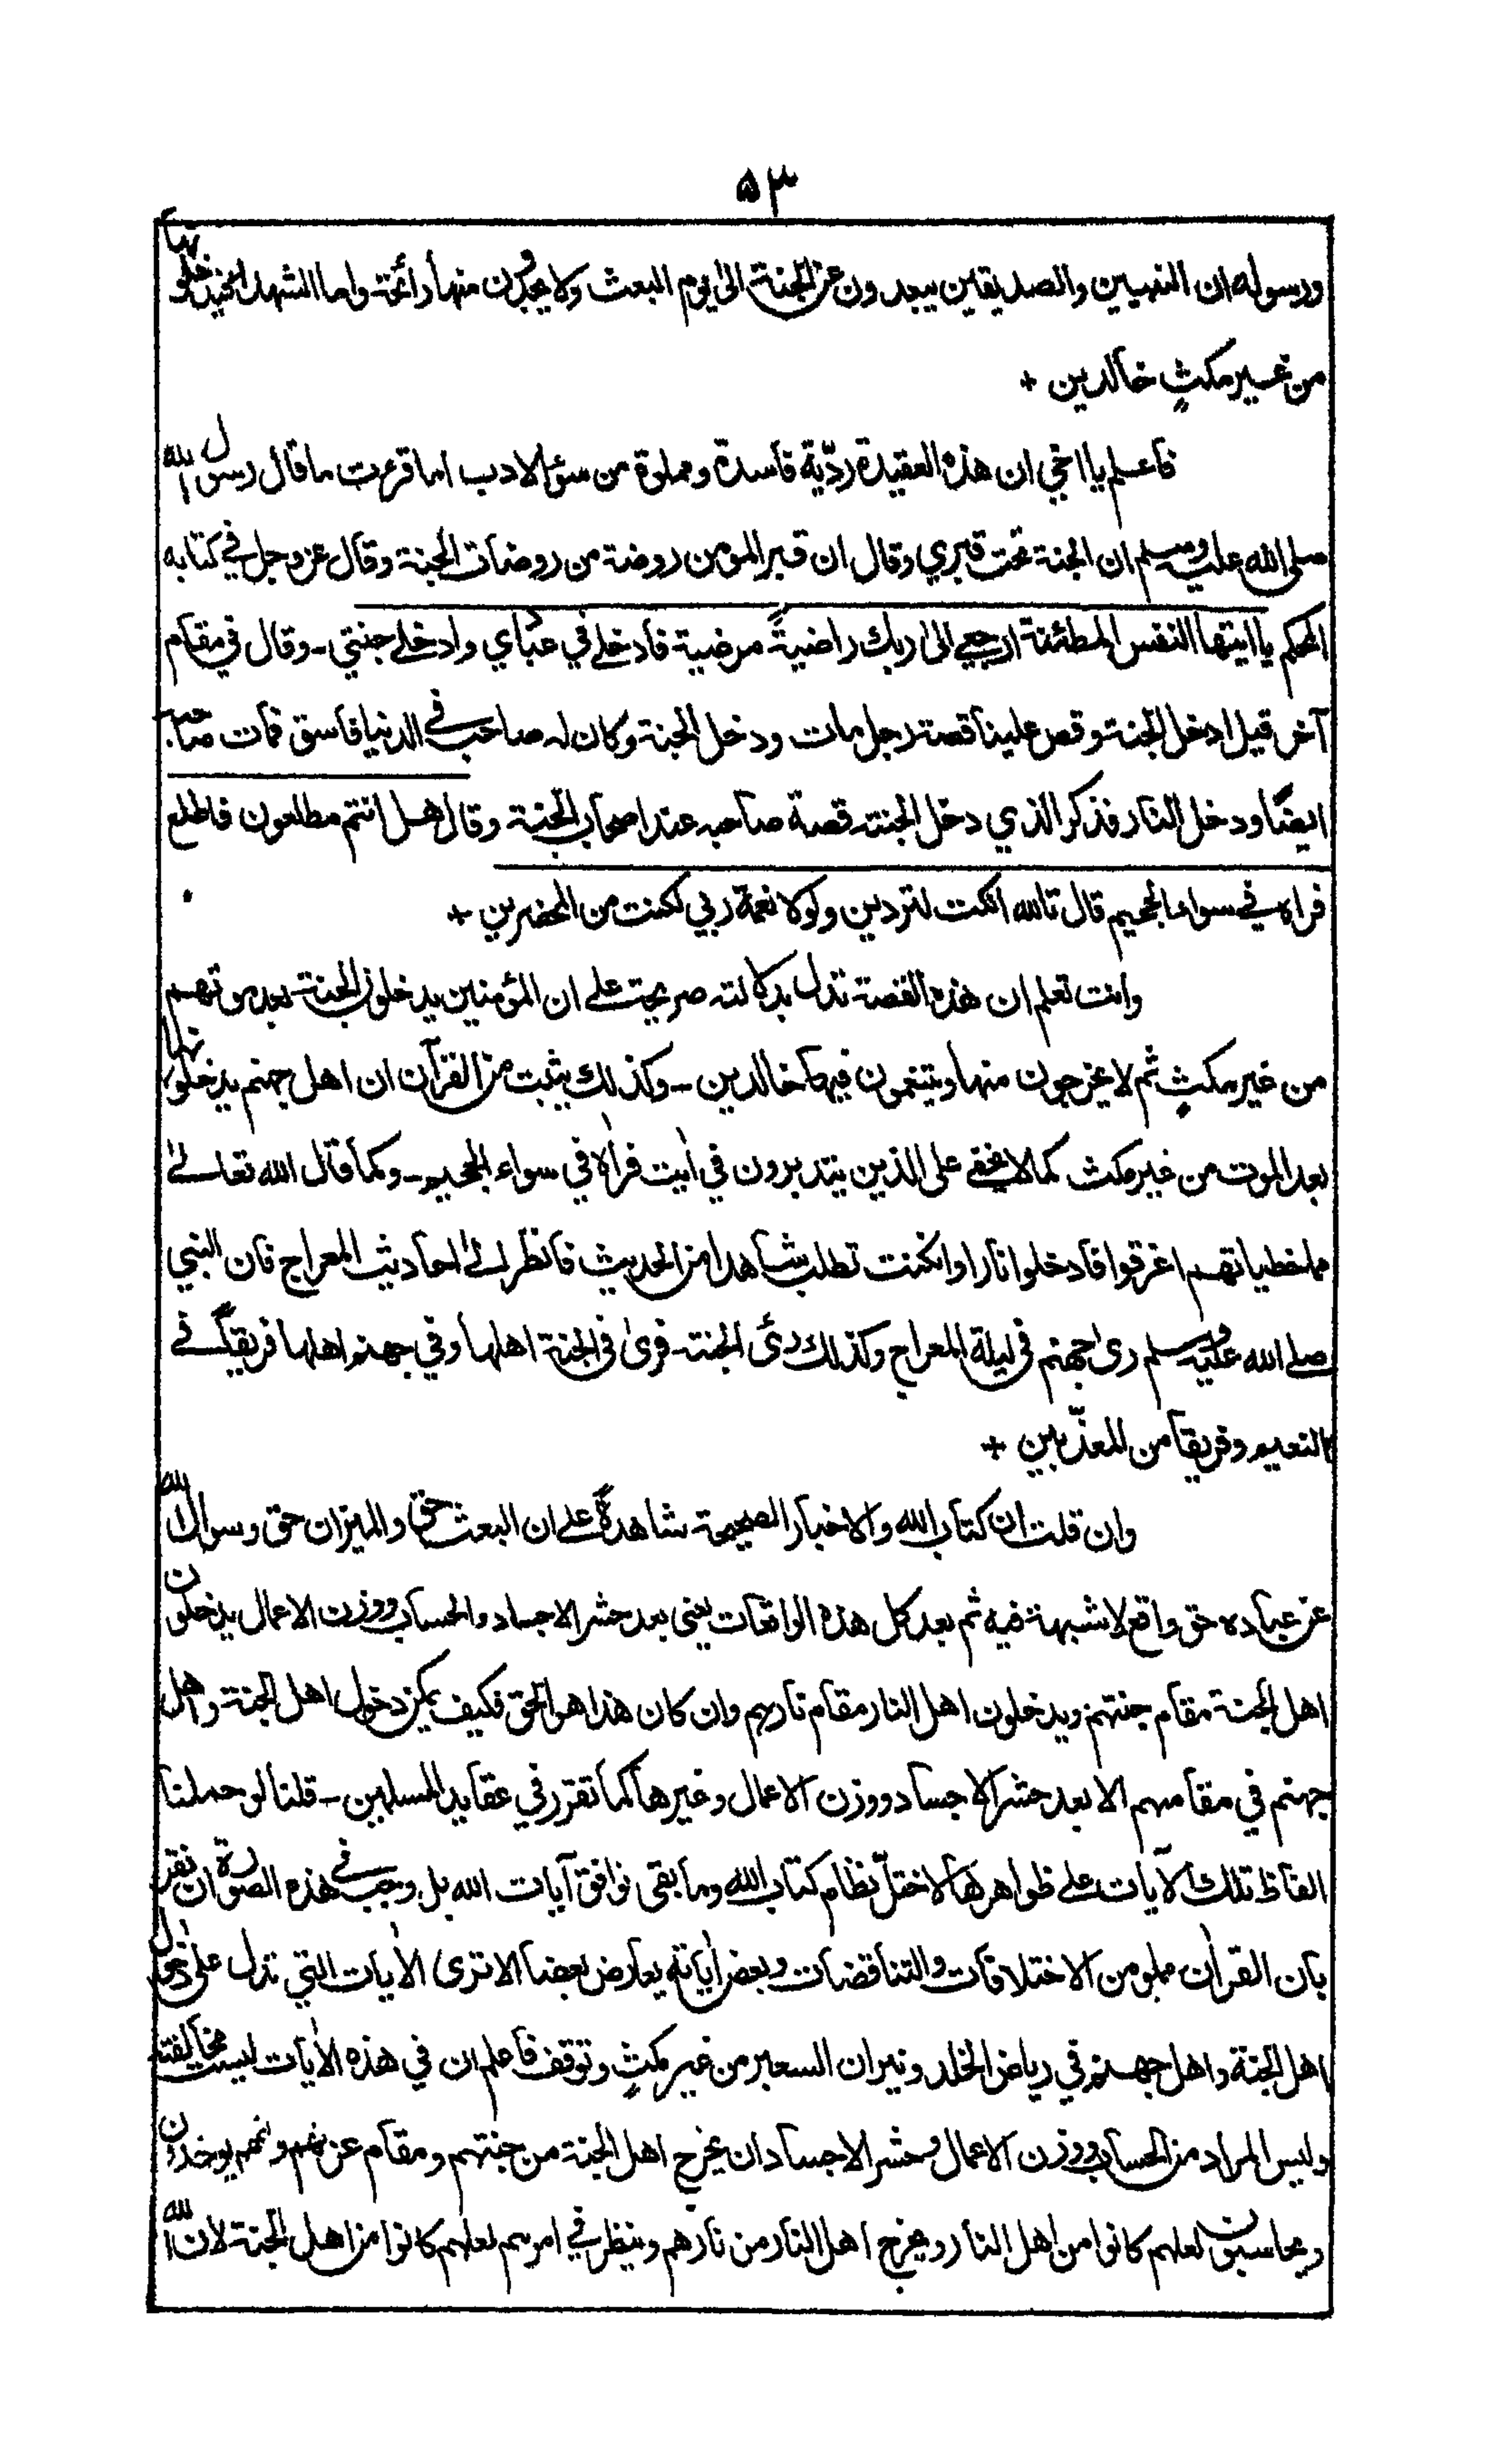 ٥٣
ورسوله ان النبيين والصديقين يبعدون عن الجنة الى يوم البعث ولا يجدون منها رائحة واما الشهداء فيدخلونها
من غير مكثٍ خالدين +
فاعلم يا اخي ان هذه العقيدة ردّية فاسدة ومملوة من سؤ الادب اما قرءت ما قال رسول الله
صلى الله عليه وسلم ان الجنة تحت قبري وقال ان قبر المومن روضة من روضات الجنة وقال عز وجل في كتابه
المحكم يا ايتها النفس المطمئنة ارجعي الى ربك راضيةً مرضية فادخلي في عبادي وادخلي جنتي - وقال في مقام
آخر قيل ادخل الجنة وقص علينا قصة رجل مات ودخل الجنة وكان له صاحب في الدنيا فاسق فمات صاحبه
ايضًا ودخل النار فذكر الذي دخل الجنة قصة صاحبه عند اصحاب الجنة وقال هل انتم مطلعون فاطلع
فراه في سواء الجحيم قال تالله ان كدت لتردين ولولا نعمة ربي لكنت من المحضرين +
وانت تعلم ان هذه القصة تدل بدلالة صريحة على ان المؤمنين يدخلون الجنة بعد موتهم
من غير مكثٍ ثم لا يخرجون منها ويتنعمون فيها خالدين - وكذلك يثبت من القرآن ان اهل جهنم يدخلونها
بعد الموت من غير مكث كما لا يخفى على الذين يتدبرون في اٰيت فراٰه في سواء الجحيم - وكما قال الله تعالىٰ
مما خطياتهم اغرقوا فادخلوا نارا وان كنت تطلب شاهدا من الحديث فانظر الى احاديث المعراج فان النبي
صلى الله عليه وسلم رى جهنم في ليلة المعراج وكذلك رئى الجنة فرىٰ في الجنة اهلها وفي جهنم اهلها فريقًا في
النعيم وفريقا من المعذّبين +
وان قلت ان كتاب الله والاخبار الصحيحة شاهدةٌ على ان البعث حق والميزان حق وسوال الله
عن عباده حق واقع لا شبهة فيه ثم بعد كل هذه الواقعات يعني بعد حشر الاجساد والحساب ووزن الاعمال يدخلون
اهل الجنة مقام جنتهم ويدخلون اهل النار مقام نارهم وان كان هذا هو الحق فكيف يمكن دخول اهل الجنة واهل
جهنم في مقامهم الا بعد حشر الاجساد ووزن الاعمال وغيرها كما تقرر في عقايد المسلمين - قلنا لو حملنا
الفاظ تلك الآيات على ظواهرها لاختلّ نظام كتاب الله وما بقى نوافق آيات الله بل وجب في هذه الصورة ان نقر
بان القراٰن مملو من الاختلافات والتناقضات وبعض اٰياته يعارض بعضا الا ترى الاٰيات التي تدل على دخول
اهل الجنة واهل جهنم في رياض الخلد ونيران السعير من غير مكثٍ وتوقف فاعلم ان في هذه الاٰيات ليست مخالفة
وليس المراد من الحساب ووزن الاعمال وحشر الاجساد ان يخرج اهل الجنة من جنتهم ومقام عزتهم يوخذون
ويحاسبون لعلهم كانوا من اهل النار ويخرج اهل النار من نارهم وينظر في امرهم لعلهم كانوا من اهل الجنة لان الله